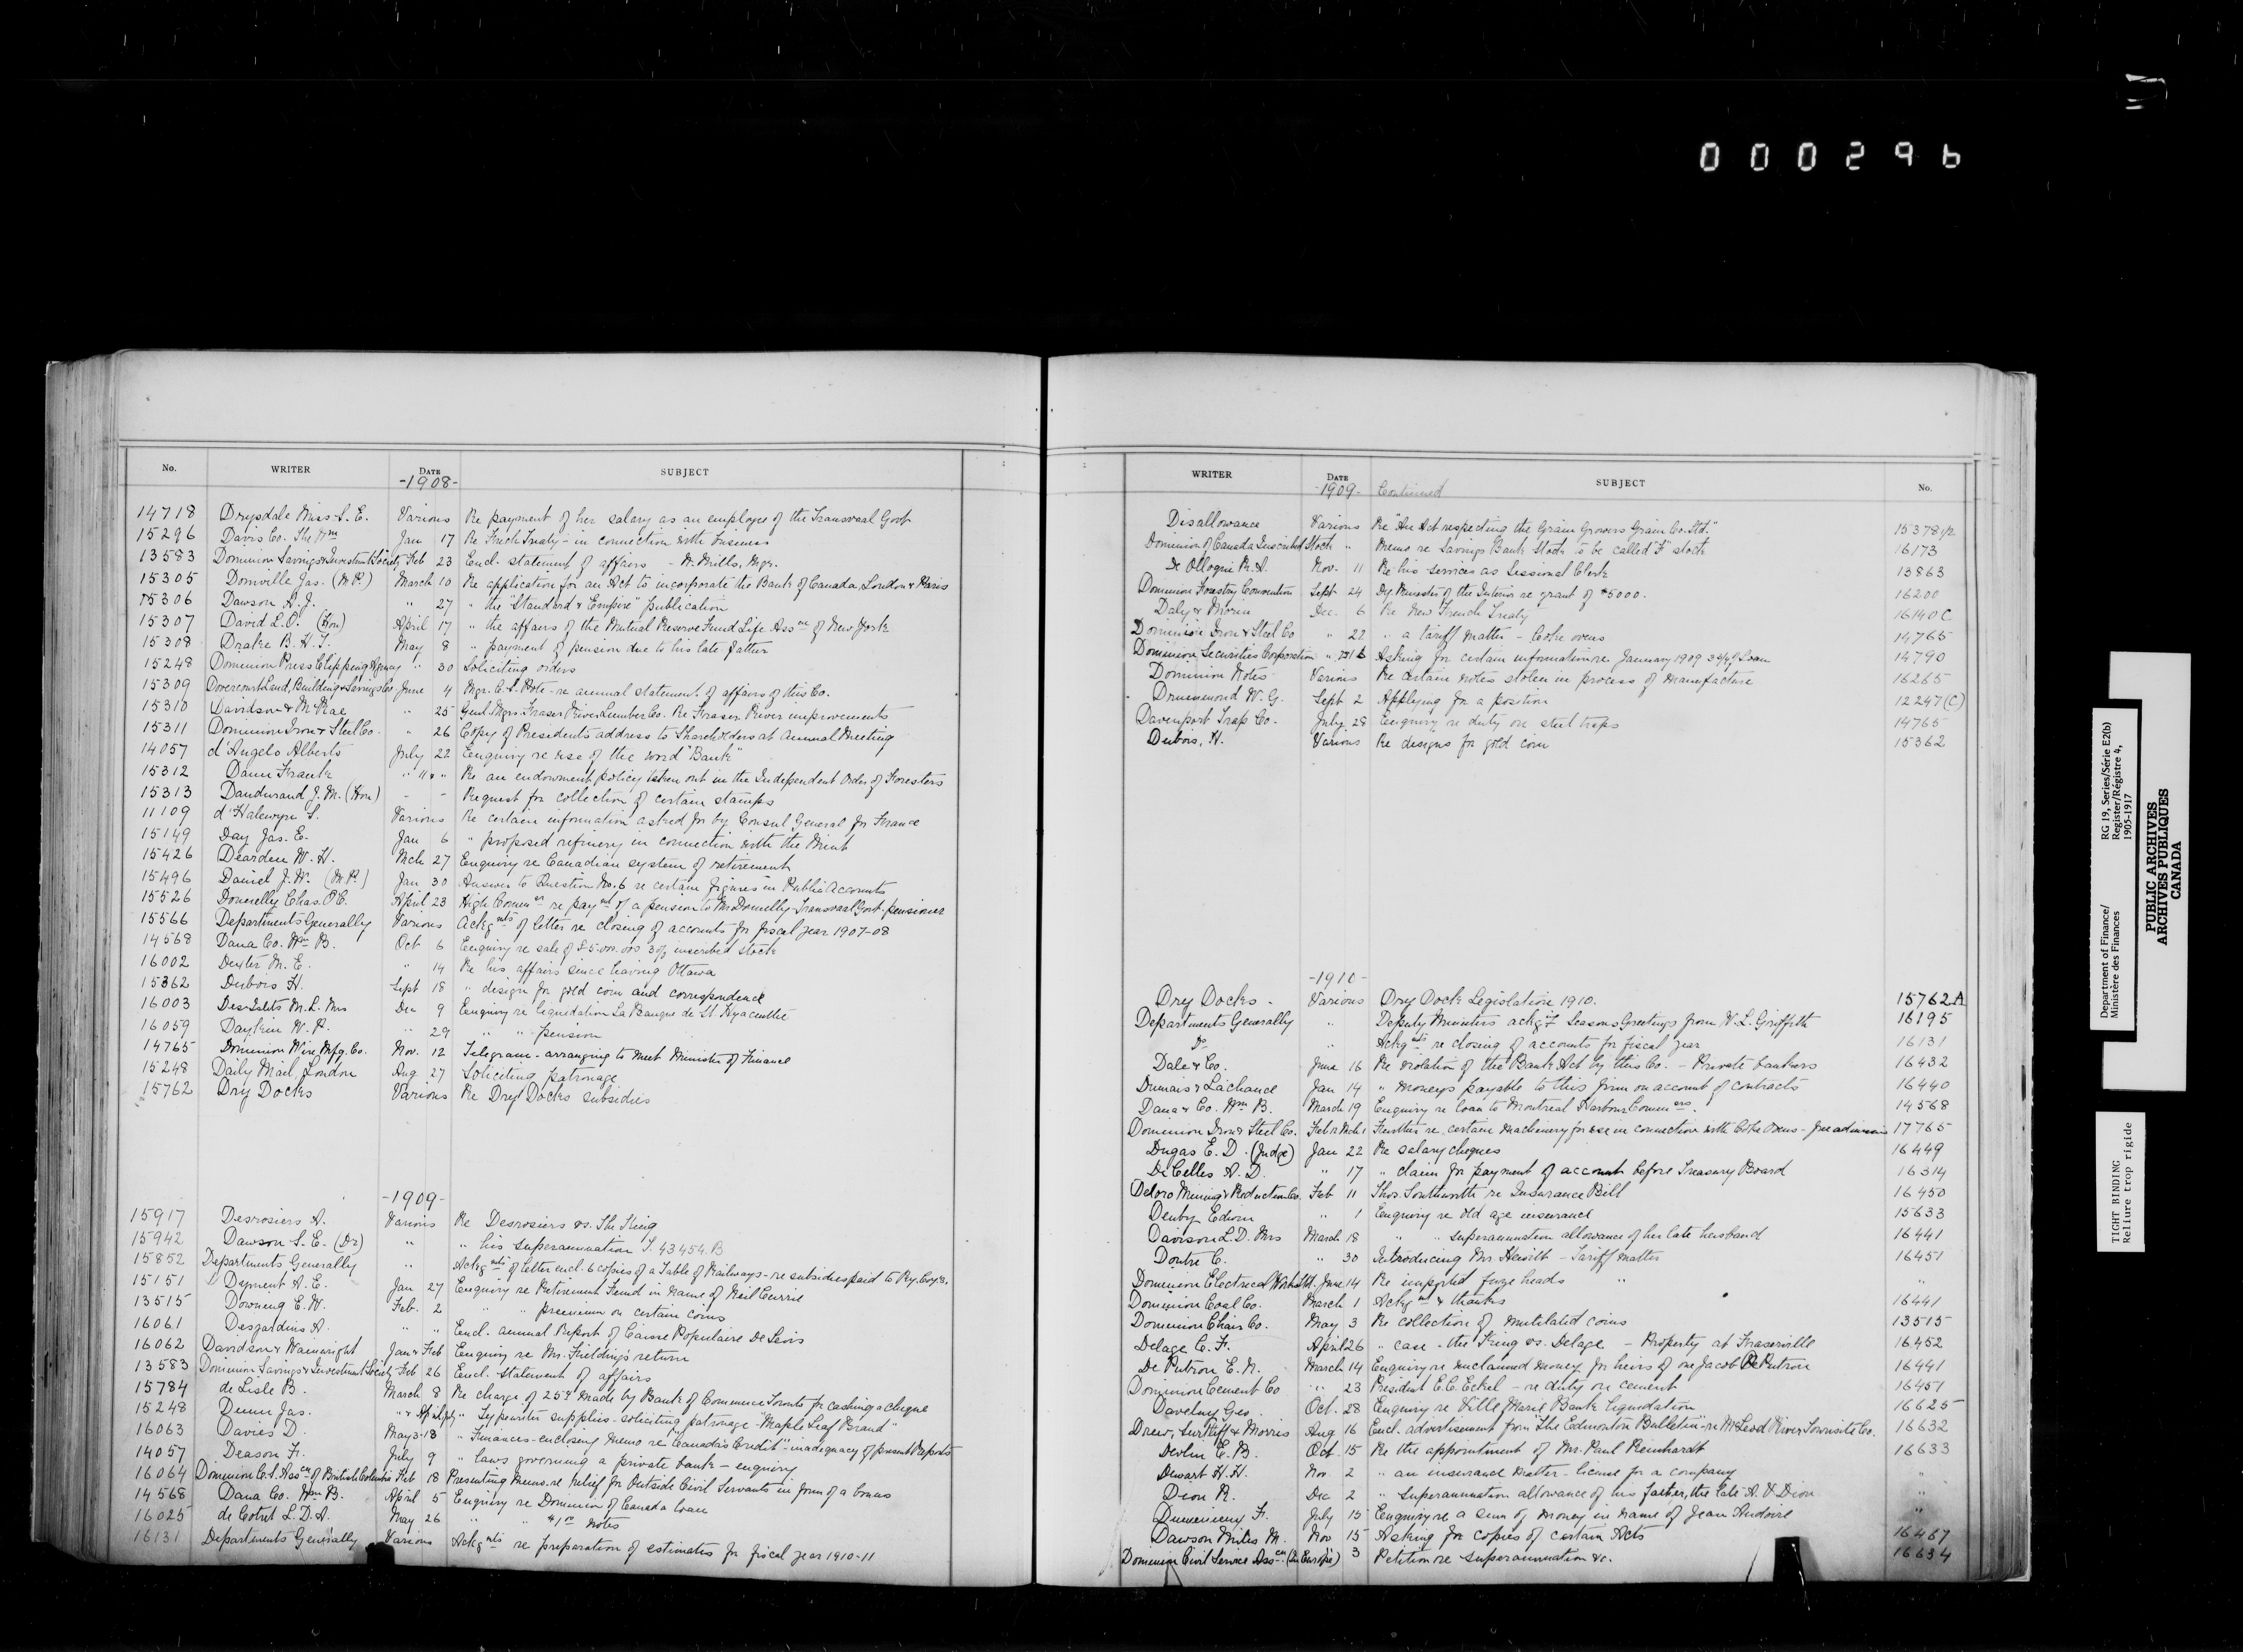 000296
No. WRITER DATE SUBJECT
-1908-
14718 Drysdale Miss S. E. Various Re payment of her salary as an employee of the Transvaal Govt
15296 Davis Co. The Wm Jan 17 Re French Treaty - in connection with business
13583 Dominion Savings & Investment Society Feb 23 Encl. statement of affairs - N. Mills, Mgr.
15305 Domville Jas. (M.P.) March 10 Re application for an Act to incorporate the Bank of Canada, London & Paris
15306 Dawson A. J. " 27 " the "Standard & Empire" publication
15307 David L.O. (Hon) April 17 " the affairs of the Mutual Reserve Fund Life Assn of New York
15308 Drake B. H. T. May 8 " payment of pension due to his late father
15248 Dominion Press Clipping Agency " 30 Soliciting orders
15309 Dovercourt Land, Building & Savings Co June 4 Mgr. C. S. Hote - re annual statement of affairs of this Co.
15310 Davidson & McRae " 25 Genl. Mgrs. Fraser River Lumber Co. Re Fraser River improvements
15311 Dominion Iron & Steel Co. " 26 Copy of Presidents address to Shareholders at Annual Meeting
14057 d'Angelo Alberto July 22 Enquiry re use of the word "Bank"
15312 Dann Frank " " " Re an endowment policy taken out in the Independent Order of Foresters
15313 Dandurand J. M. (Hon) - - Request for collection of certain stamps
11109 d'Halewyn S. Various Re certain information asked for by Consul General for France
15149 Day Jas. E. Jan 6 " proposed refinery in connection with the Mint
15426 Dearden W. H. Mch 27 Enquiry re Canadian system of retirement
15496 Daniel J. W. (M.P.) Jan 30 Answer to Question No. 6 re certain figures in Public Accounts
15526 Donnelly Chas. O'C. April 23 High Commer re paymt of a pension to Mr Donnelly Transvaal Govt. pensioner
15566 Departments Generally Various Ackgmts of letter re closing of accounts for fiscal year 1907-08
14568 Dana Co. Wm B. Oct 6 Enquiry re sale of £5.000.000 3% inscribed stock
16002 Dexter M. E. " 14 Re his affairs since leaving Ottawa
15362 Dubois H. Sept 18 " design for gold coin and correspondence
16003 Des Islets M. L. Mrs Dec 9 Enquiry re liquidation La Banque de St. Hyacinthe
16059 Daykin W. P. " 29 " " pension
14765 Dominion Wire Mfg. Co. Nov. 12 Telegram - arranging to meet Minister of Finance
15248 Daily Mail, London Aug 27 Soliciting patronage
15762 Dry Docks Various Re Dry Docks subsidies
-1909-
15917 Desrosiers A. Various Re Desrosiers vs. The King
15942 Dawson S. E. (Dr) " " his superannuation S. 43454. B
15852 Departments Generally " Ackgmts of letter encl. 6 copies of a Table of Railways - re subsidies paid to Ry. Coys.
15151 Dyment A. E. Jan 27 Enquiry re Retirement Fund in name of Neil Currie
13515 Downing E. W. Feb. 2 " " premium on certain coins
16061 Desjardins A. " " Encl. annual Report of Caisse Populaire De Levis
16062 Davidson & Wainwright Jan & Feb Enquiry re Mr. Fielding's return
13583 Dominion Savings & Investment Society Feb 26 Encl. Statement of affairs
15784 de Lisle B. March 8 Re charge of 25¢ made by Bank of Commerce Toronto for cashing a cheque
15248 Dunn Jas. " & April " Typewriter supplies - soliciting patronage - "Maple Leaf Brand"
16063 Davies D. May 3-18 " Finances - enclosing memo re "Canada's Credit" - inadequacy of present Reports
14057 Deason Fr. July 9 " laws governing a private bank - enquiry
16064 Dominion C. S. Assen of British Columbia Feb 18 Presenting Memo. re relief for Outside Civil Servants in form of a bonus
14568 Dana Co. Wm B. April 5 Enquiry re Dominion of Canada loan
16025 de Cobut L. D. A. May 26 " " $1 00 notes
16131 Departments Generally Various Ackgmts re preparation of estimates for fiscal year 1910-11
WRITER DATE SUBJECT No.
-1909- Continued
Disallowance Various Re "An Act respecting the Grain Growers Grain Co. Ltd." 15378 1/2
Dominion of Canada Inscribed Stock " Memo re Savings Bank Stock to be called "F" stock 16173
De Ologin R. A. Nov. 11 Re his services as Sessional Clerk 13863
Dominion Forestry Convention Sept 24 Dy. Minister of the Interior re grant of $5000. 16200
Daly & Morin Dec. 6 Re New French Treaty 16140 C
Dominion Iron & Steel Co " 22 " a tariff matter - Coke ovens 14765
Dominion Securities Corporation Asking for certain information re January 1909 3 3/4% Loan 14790
Dominion Notes Various Re certain notes stolen in process of manufacture 16265
Drummond W. G. Sept 2 Applying for a position 12247 (C)
Davenport Trap Co. July 28 Enquiry re duty on steel traps 14765
Dubois, H. Various Re designs for gold coin 15362
-1910-
Dry Docks - Various Dry Dock Legislation 1910. 15762 A
Departments Generally " Deputy Ministers ackg Seasons Greetings from W. L. Griffith 16195
Do " Ackgmts re closing of accounts for fiscal year 16131
Dale & Co. June 16 Re violation of the Bank Act by this Co. - Private bankers 16432
Dumais & Lachance Jan 14 " moneys payable to this firm on account of contracts 16440
Dana & Co. Wm B. March 19 Enquiry re loan to Montreal Harbour Commers. 14568
Dominion Iron & Steel Co. Feb 12 Mch 1 Further re certain machinery for use in connection with Coke Ovens - free admission 17765
Dugas E. D. (Judge) Jan 22 Re salary cheques 16449
De Celles A. D. " 17 " claim for payment of account before Treasury Board 16314
Deloro Mining & Reduction Co. Feb 11 Thos. Southworth re Insurance Bill 16450
Denby Edwin " 1 Enquiry re old age insurance 15633
Davison L. D. Mrs March 18 " " superannuation allowance of her late husband 16441
Doutre C. " 30 Introducing Mr. Hewitt - Tariff matter 16451
Dominion Electrical Works Ltd. June 14 Re imported fuze heads " "
Dominion Coal Co. March 1 Ackgmt & thanks 16441
Dominion Chair Co. May 3 Re collection of mutilated coins 13515
Delage C. F. April 26 " case - the King vs. Delage - Property at Fraserville 16452
De Putron E. N. March 14 Enquiry re unclaimed money for heirs of one Jacob De Putron 16441
Dominion Cement Co " 23 President E. C. Eckel - re duty on cement 16451
Daveluy Geo. Oct. 28 Enquiry re Ville Marie Bank liquidation 16625
Drew, Surtliff & Morris Aug 16 Encl. advertisement from "The Edmonton Bulletin" - re McLeod River Townsite Co. 16632
Devlin E. B. Oct. 15 Re the appointment of Mr. Paul Reinhardt 16633
Dewart H. H. Nov. 2 " an insurance matter - license for a company "
Dion R. Dec 2 " superannuation allowance of his father, the late A. V. Dion "
F. July 15 Enquiry re a sum of money in name of Jean Audoire "
Dawson Miles M. Nov 15 Asking for copies of certain Acts 16467
Dominion Civil Service Assen. (In Europe) 3 Petition re superannuation &c. 16634
Department of Finance/
Ministère des Finances
RG 19, Series/Série E2(b)
Register/Régistre 4,
1905-1917
PUBLIC ARCHIVES
ARCHIVES PUBLIQUES
CANADA
TIGHT BINDING
Reliure trop rigide